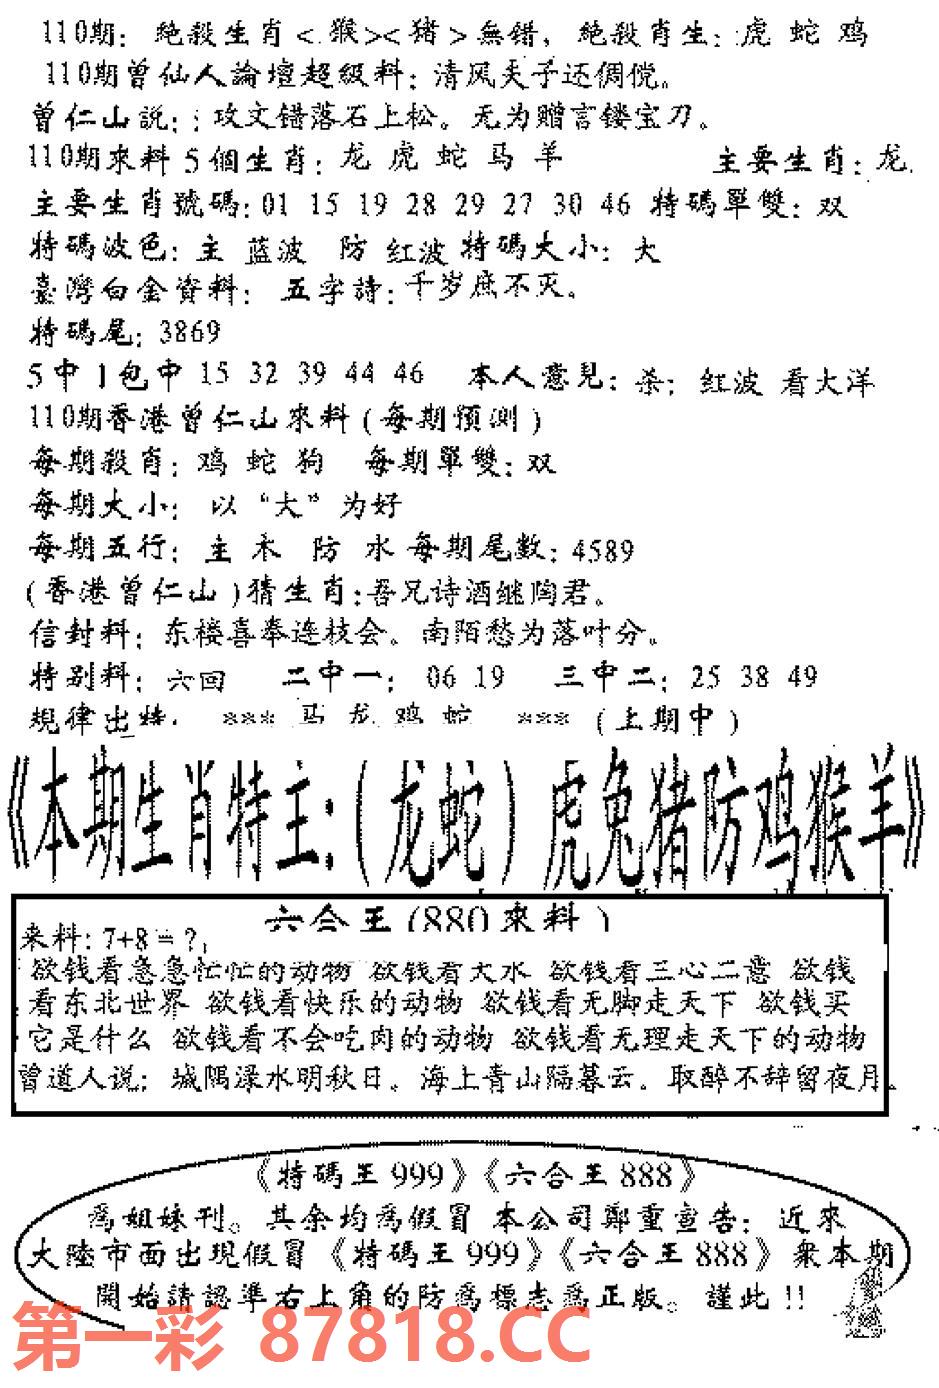 110期：絶殺生肖<猴><猪>無错，絶殺肖生：虎 蛇 鸡
110期曾仙人論壇超級料：清风天子还倜傥。
曾仁山説：攻文错落石上松。无为赠言镂宝刀。
110期來料5個生肖：龙 虎 蛇 马 羊 主要生肖：龙.
主要生肖號碼：01 15 19 28 29 27 30 46 特碼單雙：双
特碼波色：主 蓝波 防 红波 特碼大小：大
臺灣白金資料： 五字詩：千岁庶不灭。
特碼尾：3869
5中1包中 15 32 39 44 46 本人意見：杀：红波 看大洋
110期香港曾仁山來料(每期預測)
每期殺肖：鸡 蛇 狗 每期單雙：双
每期大小： 以“大”为好
每期五行：主 木 防 水 每期尾数：4589
(香港曾仁山)猜生肖：吾兄诗酒继陶君。
信封料：东楼喜奉连枝会。南陌愁为落叶分。
特别料：六回 二中一：06 19 三中二：25 38 49
規律出特： *** 马 龙 鸡 蛇 *** (上期中)
《本期生肖特主：(龙蛇)虎兔猪防鸡猴羊》
六合王(880來料)
来料：7+8=?
欲钱看急急忙忙的动物 欲钱看大水 欲钱看三心二意 欲钱
看东北世界 欲钱看快乐的动物 欲钱看无脚走天下 欲钱买
它是什么 欲钱看不会吃肉的动物 欲钱看无理走天下的动物
曾道人说：城隅渌水明秋日。海上青山隔暮云。取醉不辞留夜月.
《特碼王999》《六合王888》
為姐妹刊。其余均為假冒 本公司鄭重宣告：近來
大陸市面出現假冒《特碼王999》《六合王888》衆本期
開始請認準右上角的防為標志為正版。謹此!!
第一彩 87818.CC